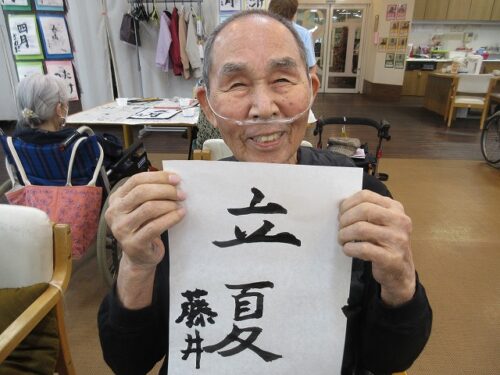 立夏
藤井